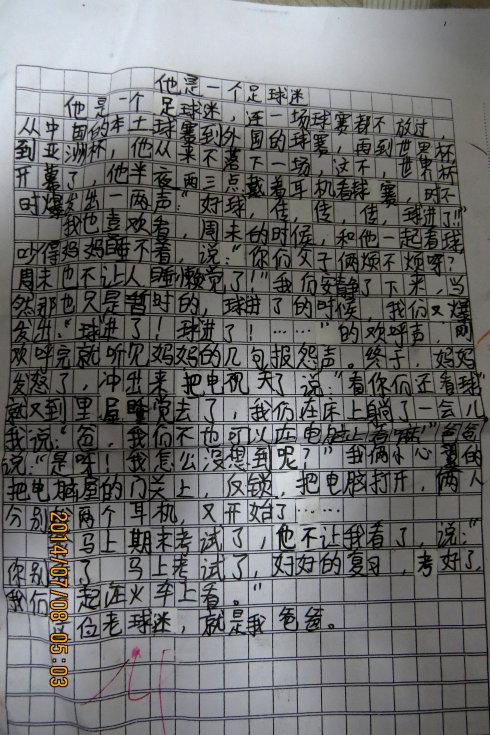 他是一个足球迷
他是一个足球迷，连一场球赛都不放过，
从中国的本土球赛到外国的球赛，再到世界杯
到亚洲杯，他从来不落下一场，这不，世界杯
开幕了，他半夜两三点戴着耳机看球赛，时不
时爆发出一两声：“好球，传，传，传，球进了!!”
我也喜欢看，周末的时候，和他一起看球
吵得妈妈睡不着，说：“你们父子俩烦不烦呀？
周末也不让人睡懒觉了！”我们安静了下来，当
然那也只是暂时的，球进了的时候，我们又爆
发出：“球进了！球进了！……”的欢呼声，刚
欢呼完就听见妈妈的几句报怨声。终于，妈妈
发怒了，冲出来，把电视关了说：“看你们还看球”
就又到里屋睡觉去了，我们在床上躺了一会儿
我说：“爸，我们不也可以在电脑上看嘛”爸爸
说：“是呀！我怎么没想到呢？”我俩小心翼的
把电脑屋的门关上，反锁，把电脑打开，两人
分别 两个耳机，又开始了……
马上期末考试了，他不让我看了，说：“
你别 了 马上考试了，好好的复习，考好了，
我们一起在火车上看。”
这位老球迷，就是我爸爸。
2014/07/08 05:03